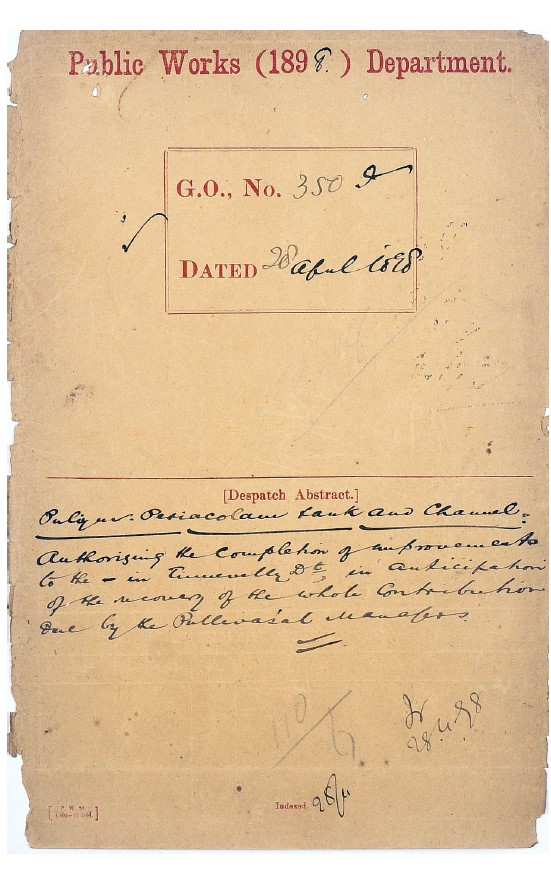 Public Works (1898.) Department.
G.O., No. 350 I
DATED 28 April 1898
[Despatch Abstract.]
Periacolam tank and Channel.
Authorising the Completion of improvements
to the – in Tinnevelly Dt, in anticipation
of the recovery of the whole Contribution
due by the Pallivasal Managers.
110/
28.4.98
Indexed 28/4